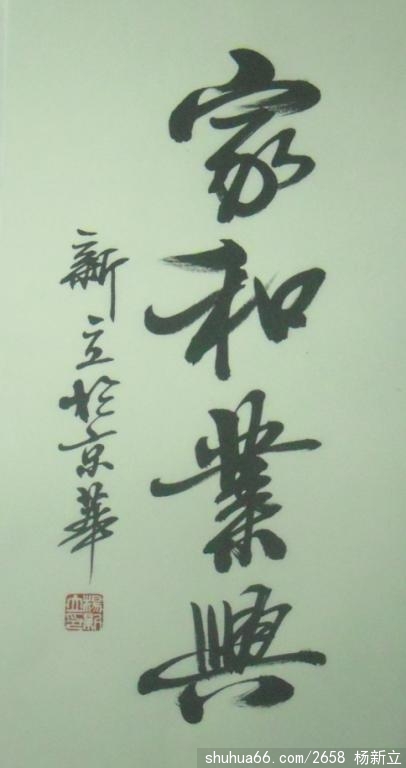 家和業興
新立於京華
楊新立印
shuhua66.com/2658 杨新立